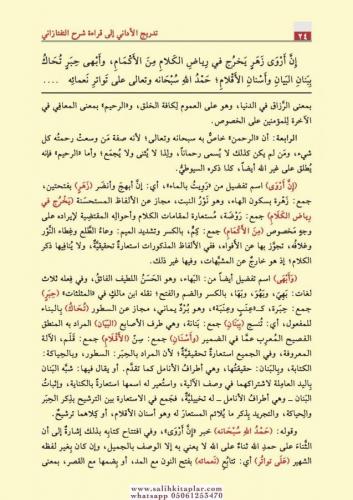 ٢٤
تدريج الأداني إلى قراءة شرح التفتازاني
إِنَّ أَرْوَى زَهَرٍ يَخرُج في رِياضِ الكلامِ مِنَ الأكْمامِ، وأبْهى حِبَرٍ تُحاكُ
بِبَنانِ البَيانِ وأسْنانِ الأقْلامِ؛ حَمْدُ اللهِ سُبْحانَه وتعالى على تَواتُرِ نَعمائِهِ ....
بمعنى الرَّزاق في الدنيا، وهو على العموم لِكافة الخلق، و«الرحيم» بمعنى المعافي في
الآخرة للمؤمنين على الخصوص.
الرابعة: أن «الرحمن» خاصٌّ به سبحانه وتعالى؛ لأنه صفة مَن وسعتْ رحمتُه كل
شيء، ومَن لم يكن كذلك لا يسمى رحماناً، ولذا لا يُثنى ولا يُجمَع؛ وأما «الرحيم» فإنه
يُطلق على غير الله أيضاً، كذا ذكر السيوطيُّ.
(إِنَّ أَرْوَى) اسم تفضيل من «رَوِيتُ بالماء»، أي: إنَّ أبهجَ وأنضَر (زَهَرٍ) بفتحتين،
جمع: زَهرة بسكون الهاء، وهو نَوْرُ النبات، مجاز عن الألفاظ المستحسَنة (يَخرُج في
رِياض الكَلَام) جمع: رَوْضَة، مُستعارة لمقامات الكلام وأحواله المقتضِية لإيراده على
وجهٍ مَخصوص (مِنَ الأَكْمَامِ) جمع: كِمٍّ، بالكسر وتشديد الميم: وِعاءُ الطَّلع وغِطاء النَّوْر
وغلافُه، تجوَّز بها عن الأفواه، ففي الألفاظ المذكورات استعارةٌ تحقيقيَّةٌ، ولا يُنافيها ذكر
الكلام؛ إذ هو خارجٌ عن المشبَّهات، وفيها غير ذلك.
(وَأَبْهَى) اسم تفضيل أيضاً من: البَهاء، وهو الحَسَنُ اللطيف الفائقُ، وفي فِعله ثلاث
لغات: بَهِيَ، وبَهُوَ، وبَهَا، بالكسر والضم والفتح؛ نقله ابن مالكٍ في «المثلثات» (حِبَرٍ)
جمع: حِبَرَة، كـ«عِنَبٍ وعِنَبَة»، وهو بُرْدٌ يماني، مجاز عن السطور (تُحَاكُ) بالبناء
للمفعول، أي: تُنسج (بِبَنَانِ) جمع: بَنانة، وهي طرف الأصابع (البَيَانِ) المراد به المنطق
الفصيح المعرِب عمَّا في الضمير (وَأَسْنَانِ) جمع: سِنٍّ (الأَقْلَامِ) جمع: قَلَم، الآلة
المعروفة، وفي الجميع استعارةٌ تحقيقيَّةٌ؛ لأن المراد بالحِبَر: السطور، وبالحِياكة:
الكتابة، وبالبَنان: حقيقتُها، وهي أطرافُ الأنامل كما تقدَّم. أو يقال فيها: شبَّه البَنان
بِاليد العاملة لاشتراكهما في وصف الآلية، واستُعير له اسمها استعارةً بالكناية، وإثباتُ
البَنان ـ وهي أطرافُ الأنامل ـ له تخييليَّةٌ، فجمع في الاستعارة بين الترشيح بذكر الحِبَر
والحِياكة، والتجريد بِذكر ما يُلائم المستعارَ له وهو أسنان الأقلام، أو كلاهما ترشيحٌ.
وقوله: (حَمْدُ اللهِ سُبْحَانَه) خبر «إِنَّ أَرْوَى»، وفي افتتاح كتابِه بذلك إشارةٌ إلى أن
الثَّناءَ على حمدِ الله ثناءٌ على الله لا يعني به إلا الوصف بالجميل، وإن كان بغير لفظه
الشهير (عَلَى تَواتُرِ) أي: تتابُعِ (نَعمائِهِ) بفتح النون مع المد، أو بضمها مع القصر، بمعنى
www.salihkitaplar.com
whatsapp 05061255470